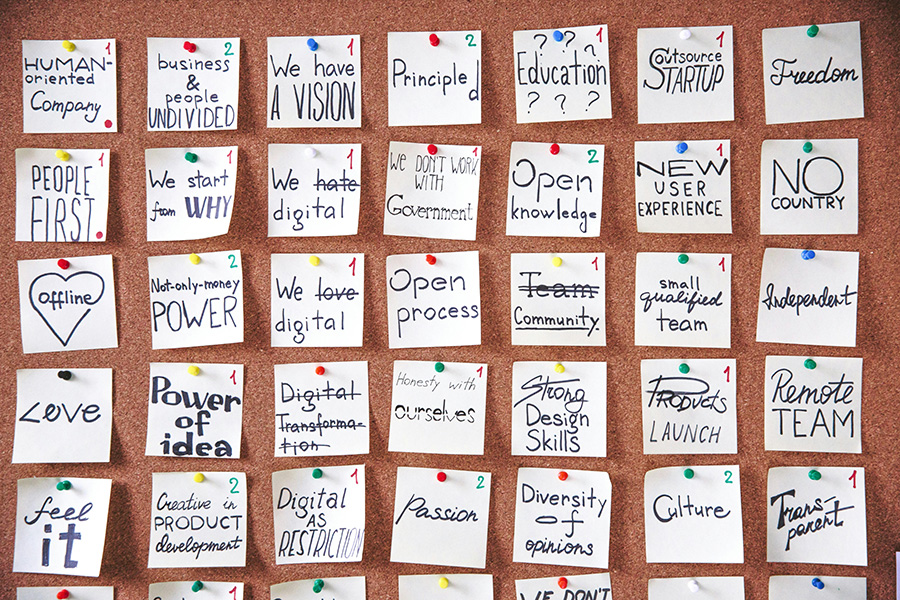 HUMAN- 1
oriented
Company
business 2
&
people
UNDIVIDED
We have 1
A VISION
Principled 2
? ? ? 1
Education
? ? ?
Outsource 1
STARTUP
Freedom
PEOPLE 1
FIRST
We start 1
from WHY
We hate 1
digital
WE DON'T WORK 1
WITH
Government
Open 2
knowledge
NEW 1
USER
EXPERIENCE
NO
COUNTRY
offline
Not-only-money 2
POWER
We love 1
digital
Open
process
Team 1
Community
small 1
qualified
team
Independent
Love
Power 1
of
idea
Digital
Transforma-
tion
Honesty with 1
ourselves
Strong
Design
Skills
Products 1
LAUNCH
Remote
TEAM
feel
it
Creative in 2
PRODUCT
development
Digital 1
AS
RESTRICTION
Passion 2
Diversity
of
opinions
Culture 2
Trans- 1
parent
2
1
WE DON'T